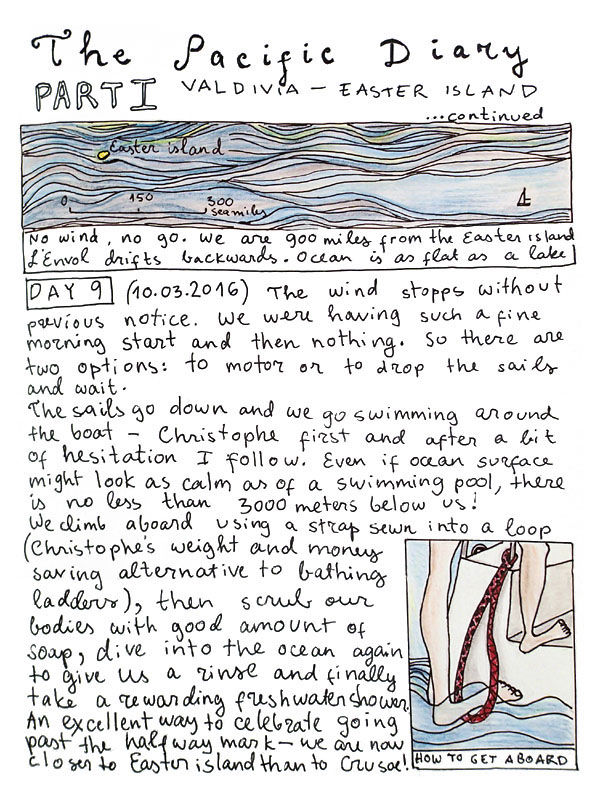 The Pacific Diary
PART I VALDIVIA — EASTER ISLAND
...continued
Easter island
0 150 300
seamiles
No wind, no go. We are 900 miles from the Easter island
L'Envol drifts backwards. Ocean is as flat as a lake!
DAY 9 (10.03.2016) The wind stopps without
previous notice. We were having such a fine
morning start and then nothing. So there are
two options: to motor or to drop the sails
and wait.
The sails go down and we go swimming around
the boat – Christophe first and after a bit
of hesitation I follow. Even if ocean surface
might look as calm as of a swimming pool, there
is no less than 3000 meters below us!
We climb aboard using a strap sewn into a loop
(Christophe's weight and money
saving alternative to bathing
ladders), then scrub our
bodies with good amount of
soap, dive into the ocean again
to give us a rinse and finally
take a rewarding freshwater shower.
An excellent way to celebrate going
past the halfway mark – we are now
closer to Easter island than to Crusoe!
HOW TO GET ABOARD